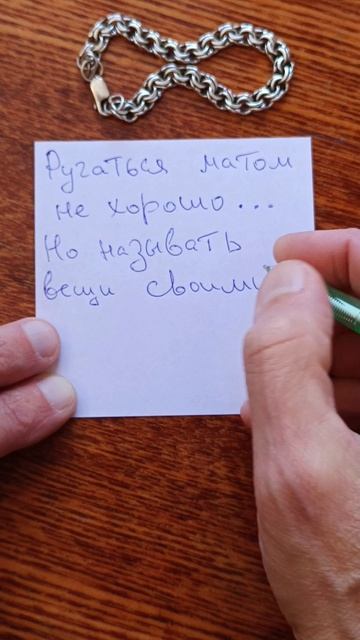 Ругаться матом
не хорошо...
Но называть
вещи своими